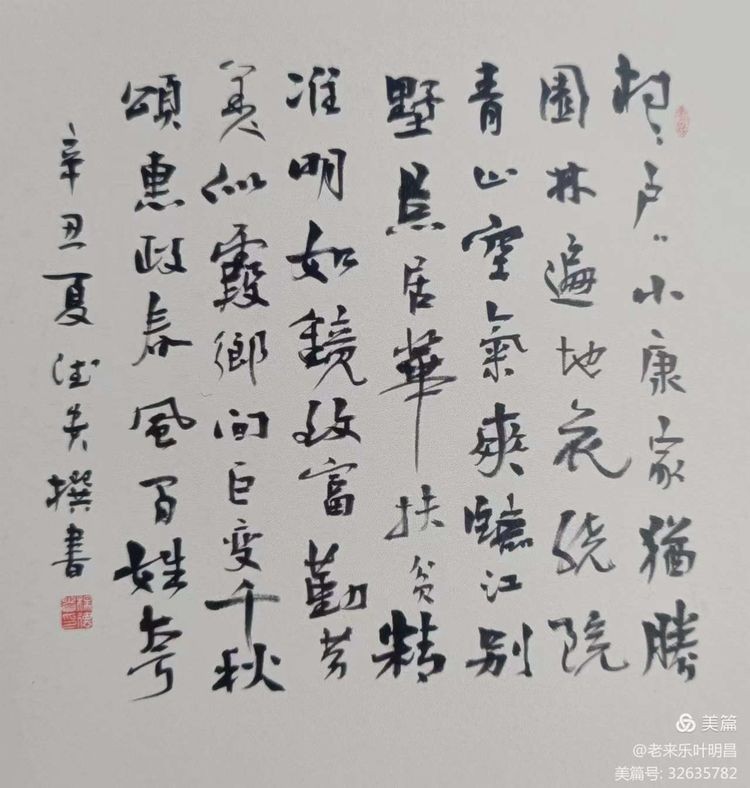 村〻户〻小康家猶勝
園林遍地花绕院
青山空氣爽臨江别
墅居華扶贫精
准明如鏡致富勤劳
美似霞鄉间巨变千秋
頌惠政春風百姓夸
辛丑夏德撰書
美篇
@老来乐叶明昌
美篇号: 32635782